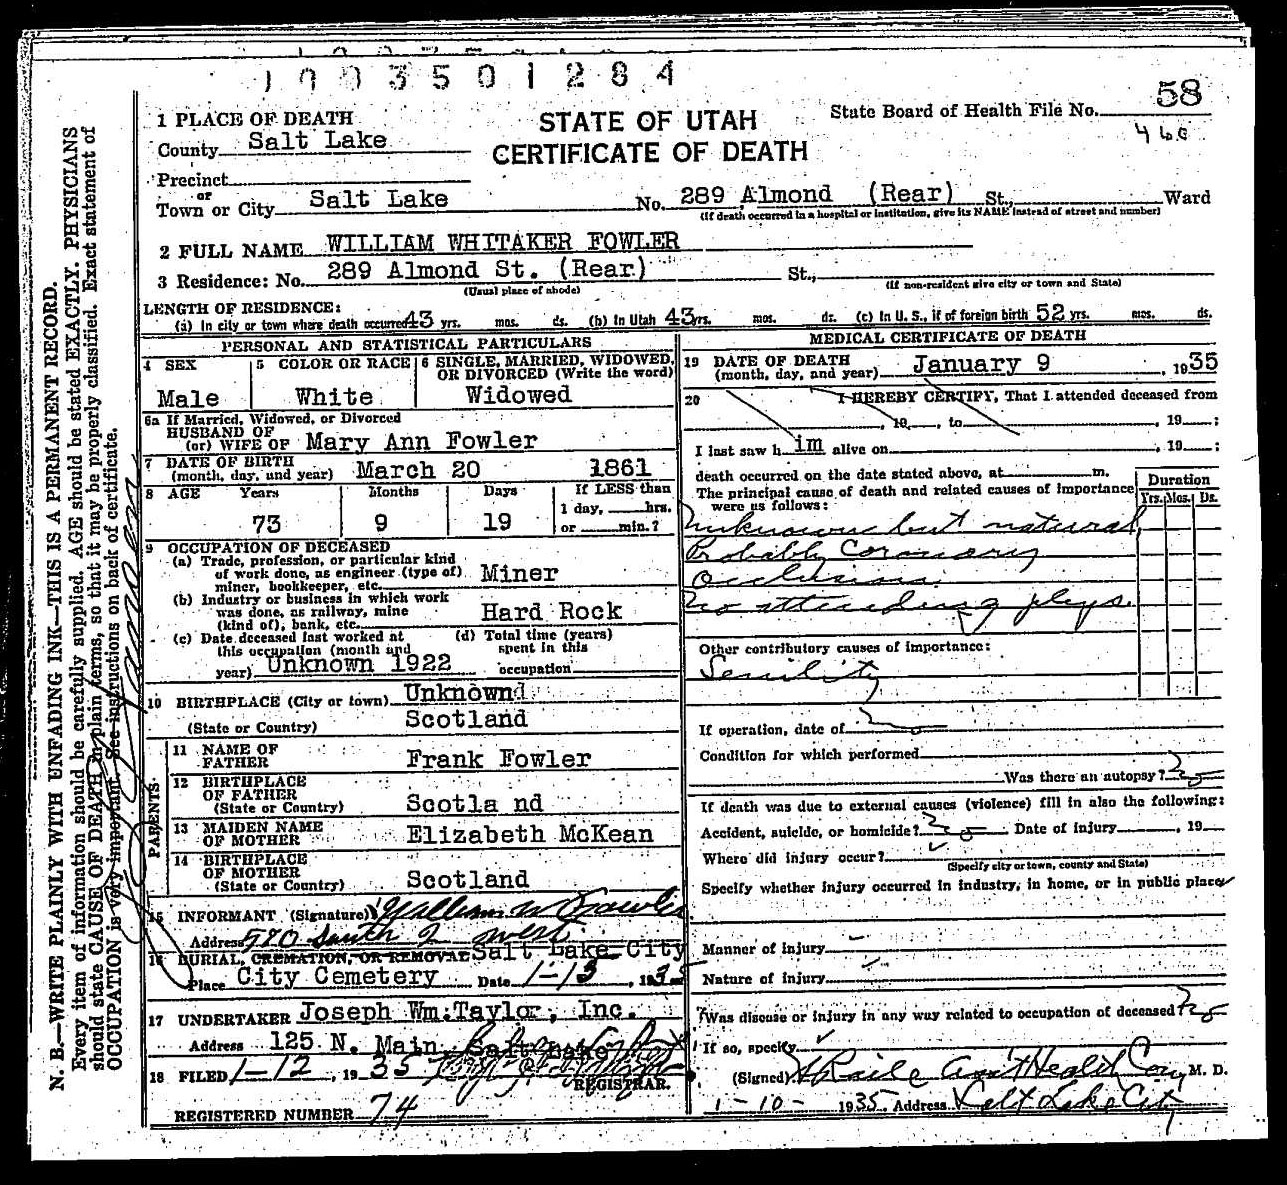 1003501284
58
State Board of Health File No.
460
STATE OF UTAH
CERTIFICATE OF DEATH
1 PLACE OF DEATH
County Salt Lake
Precinct
or
Town or City Salt Lake No. 289 Almond (Rear) St., Ward
(If death occurred in a hospital or institution, give its NAME instead of street and number)
2 FULL NAME WILLIAM WHITAKER FOWLER
3 Residence: No. 289 Almond St. (Rear) St.,
(Usual place of abode) (If non-resident give city or town and State)
LENGTH OF RESIDENCE:
(a) In city or town where death occurred 43 yrs. mos. ds. (b) In Utah 43 yrs. mos. ds. (c) In U. S., if of foreign birth 52 yrs. mos. ds.
PERSONAL AND STATISTICAL PARTICULARS
4 SEX
Male
5 COLOR OR RACE
White
6 SINGLE, MARRIED, WIDOWED,
OR DIVORCED (Write the word)
Widowed
6a If Married, Widowed, or Divorced
HUSBAND OF
(or) WIFE OF Mary Ann Fowler
7 DATE OF BIRTH
(month, day, and year) March 20 1861
8 AGE Years Months Days If LESS than
1 day, hrs.
73 9 19 or min.?
9 OCCUPATION OF DECEASED
(a) Trade, profession, or particular kind
of work done, as engineer (type of)
miner, bookkeeper, etc. Miner
(b) Industry or business in which work
was done, as railway, mine
(kind of), bank, etc. Hard Rock
(c) Date deceased last worked at
this occupation (month and
year) Unknown 1922
(d) Total time (years)
spent in this
occupation
10 BIRTHPLACE (City or town) Unknownd
(State or Country) Scotland
PARENTS
11 NAME OF
FATHER Frank Fowler
12 BIRTHPLACE
OF FATHER
(State or Country) Scotla nd
13 MAIDEN NAME
OF MOTHER Elizabeth McKean
14 BIRTHPLACE
OF MOTHER
(State or Country) Scotland
15 INFORMANT (Signature) William W Fowler
Address 570 South 2 West
16 BURIAL, CREMATION, OR REMOVAL Salt Lake City
Place City Cemetery Date 1-13, 1935
17 UNDERTAKER Joseph Wm. Taylor, Inc.
Address 125 N. Main, Salt Lake
18 FILED 1-12, 1935
REGISTRAR.
REGISTERED NUMBER 74
MEDICAL CERTIFICATE OF DEATH
19 DATE OF DEATH
(month, day, and year) January 9, 1935
20 I HEREBY CERTIFY, That I attended deceased from
, 19 , to , 19 ;
I last saw him alive on , 19 ;
death occurred on the date stated above, at m.
The principal cause of death and related causes of importance
were as follows:
Duration
Yrs. Mos. Ds.
Unknown but natural
Probably Coronary
Occlusion.
No attending phys.
Other contributory causes of importance:
Senility
If operation, date of
Condition for which performed
Was there an autopsy? No
If death was due to external causes (violence) fill in also the following:
Accident, suicide, or homicide? No Date of injury , 19
Where did injury occur?
(Specify city or town, county and State)
Specify whether injury occurred in industry, in home, or in public place
Manner of injury
Nature of injury
Was disease or injury in any way related to occupation of deceased? No
If so, specify
(Signed) M. D.
1-10-1935 Address Salt Lake City
N. B.—WRITE PLAINLY WITH UNFADING INK—THIS IS A PERMANENT RECORD.
Every item of information should be carefully supplied. AGE should be stated EXACTLY. PHYSICIANS
should state CAUSE OF DEATH in plain terms, so that it may be properly classified. Exact statement of
OCCUPATION is very important. See instructions on back of certificate.